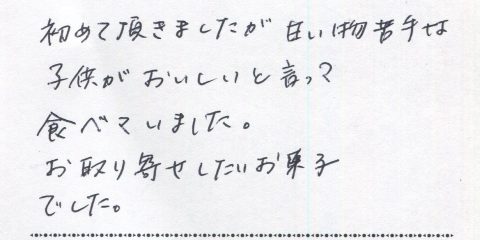 初めて頂きましたが甘い物苦手な
子供がおいしいと言って
食べていました。
お取り寄せしたいお菓子
でした。